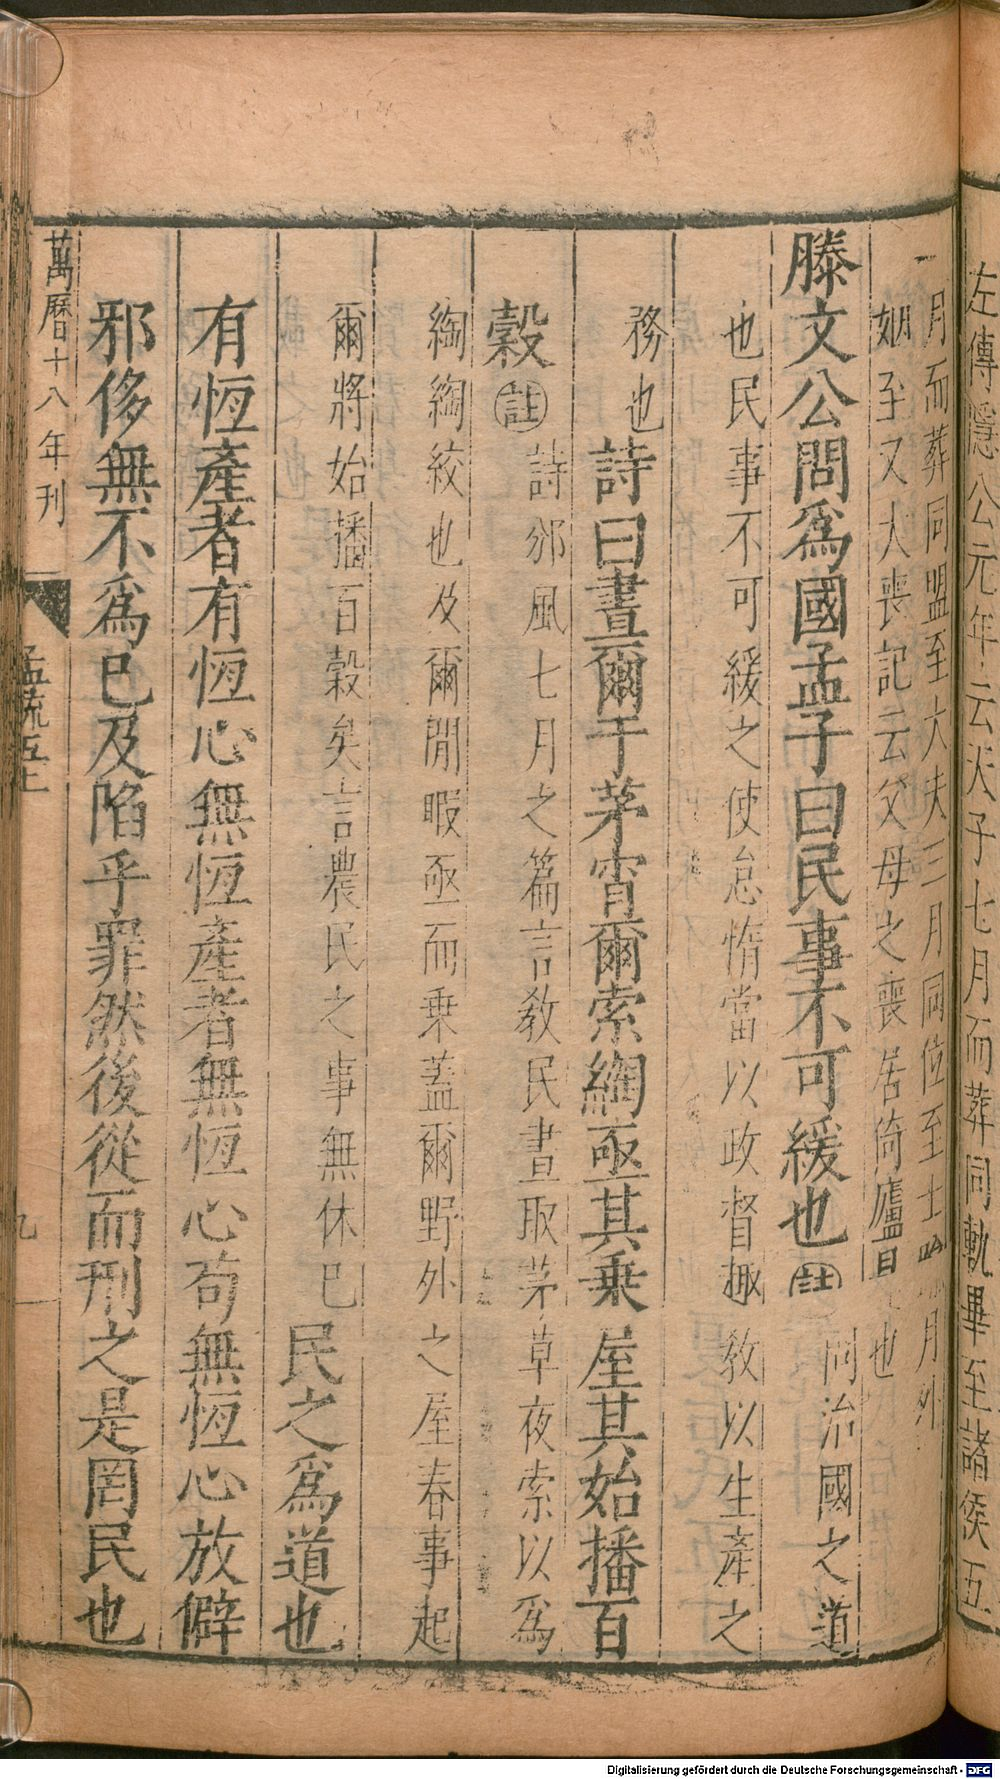 左傳隱公元年云天子七月而葬同軌畢至諸侯五
月而葬同盟至大夫三月同位至士
姻至又大喪記云父母之喪居倚廬
也
滕文公問爲國孟子曰民事不可緩也註問治國之道
也民事不可緩之使怠惰當以政督趣敎以生產之
務也詩曰晝爾于茅宵爾索綯亟其乗屋其始播百
穀註詩邠風七月之篇言敎民晝取茅草夜索以爲
綯綯絞也及爾閒暇亟而乗蓋爾野外之屋春事起
爾將始播百穀矣言農民之事無休巳民之爲道也
有恆產者有恆心無恆產者無恆心苟無恆心放僻
邪侈無不爲巳及陷乎罪然後從而刑之是罔民也
萬曆十八年刊 孟疏五上 九
Digitalisierung gefördert durch die Deutsche Forschungsgemeinschaft - DFG